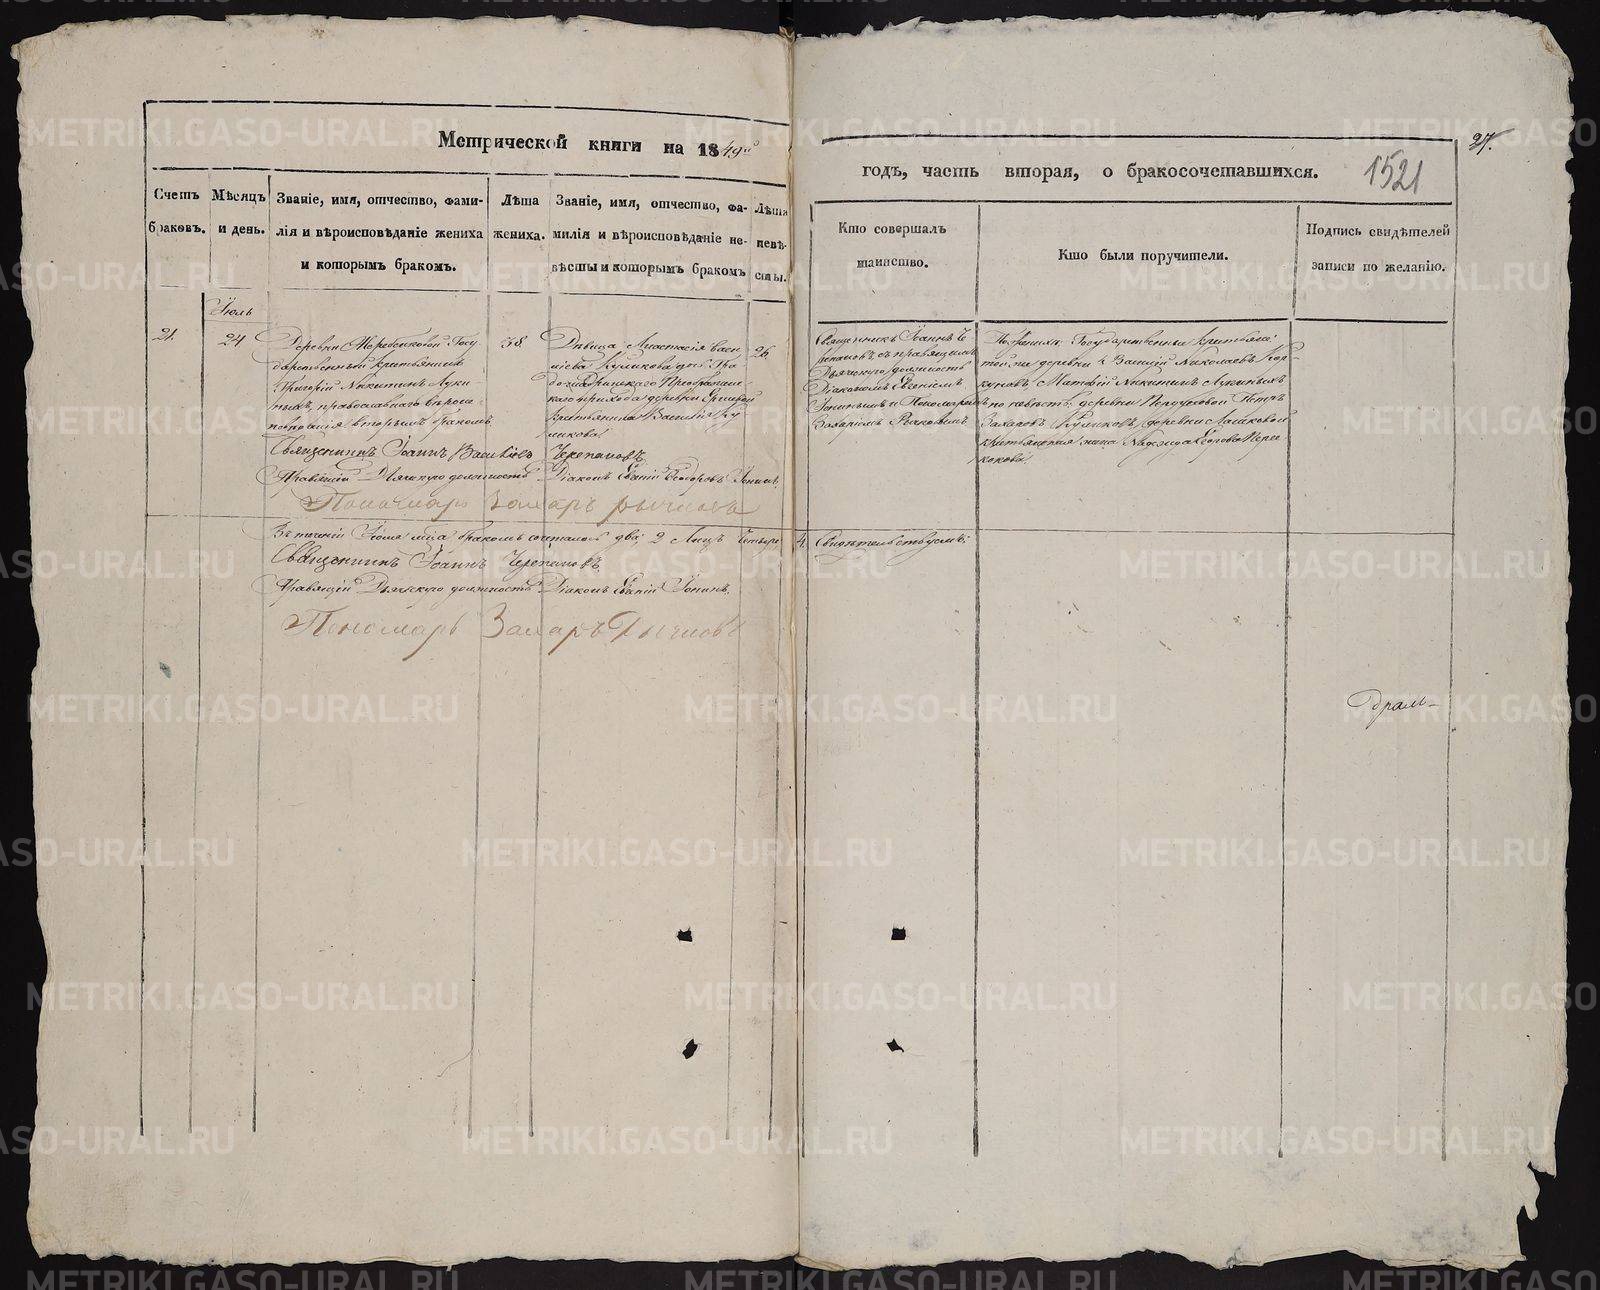 Метрической книги на 1849й
годъ, часть вторая, о бракосочетавшихся.
1521
27.
Счетъ браковъ.
Мѣсяцъ и день.
Званіе, имя, отчество, фами-
лія и вѣроисповѣданіе жениха
и которымъ бракомъ.
Лѣта
жениха.
Званіе, имя, отчество, фа-
милія и вѣроисповѣданіе не-
вѣсты и которымъ бракомъ
Лѣта
невѣ-
сты.
Кто совершалъ
таинство.
Кто были поручители.
Подпись свидѣтелей
записи по желанію.
Іюль
21.
24
Деревни Жеребенковой Госу
дарственный крестьянинъ
Григорій Никитинъ Луки-
ныхъ, православнаго вѣроис-
повѣданія вторымъ бракомъ
38.
Дѣвица Анастасія Васи
ліева Куликова дочь Гра-
Преображен-
скаго прихода деревни
крестьянина Василія Ку
ликова
26.
Священникъ Іоаннъ Че
репановъ, съ правящимъ
дьяческую должность
Діакономъ Евгеніемъ
Іонинымъ и Пономаремъ
Захаромъ Рычковымъ
По женихѣ: Государственные крестьяне:
той же деревни Николаевъ Кор-
куновъ, Матвѣй Никитинъ Лукиныхъ
по невѣстѣ: деревни Петръ
Захаровъ Куликовъ, деревни
крестьянская жена Надежда Егорова
Священникъ Іоаннъ Васильевъ Черепановъ
Правящій Дьяческую должность Діаконъ Евгеній Ѳеодоровъ Іонинъ.
Пономарь Захаръ Рычковъ
Въ теченіи Іюля м͠ца бракомъ сочеталось два, 2 Лицъ четыре 4. Свидѣтельствуемъ:
Священникъ Іоаннъ Черепановъ
Правящій Дьяческую должность Діаконъ Евгеній Іонинъ.
Пономарь Захаръ Рычковъ
METRIKI.GASO-URAL.RU